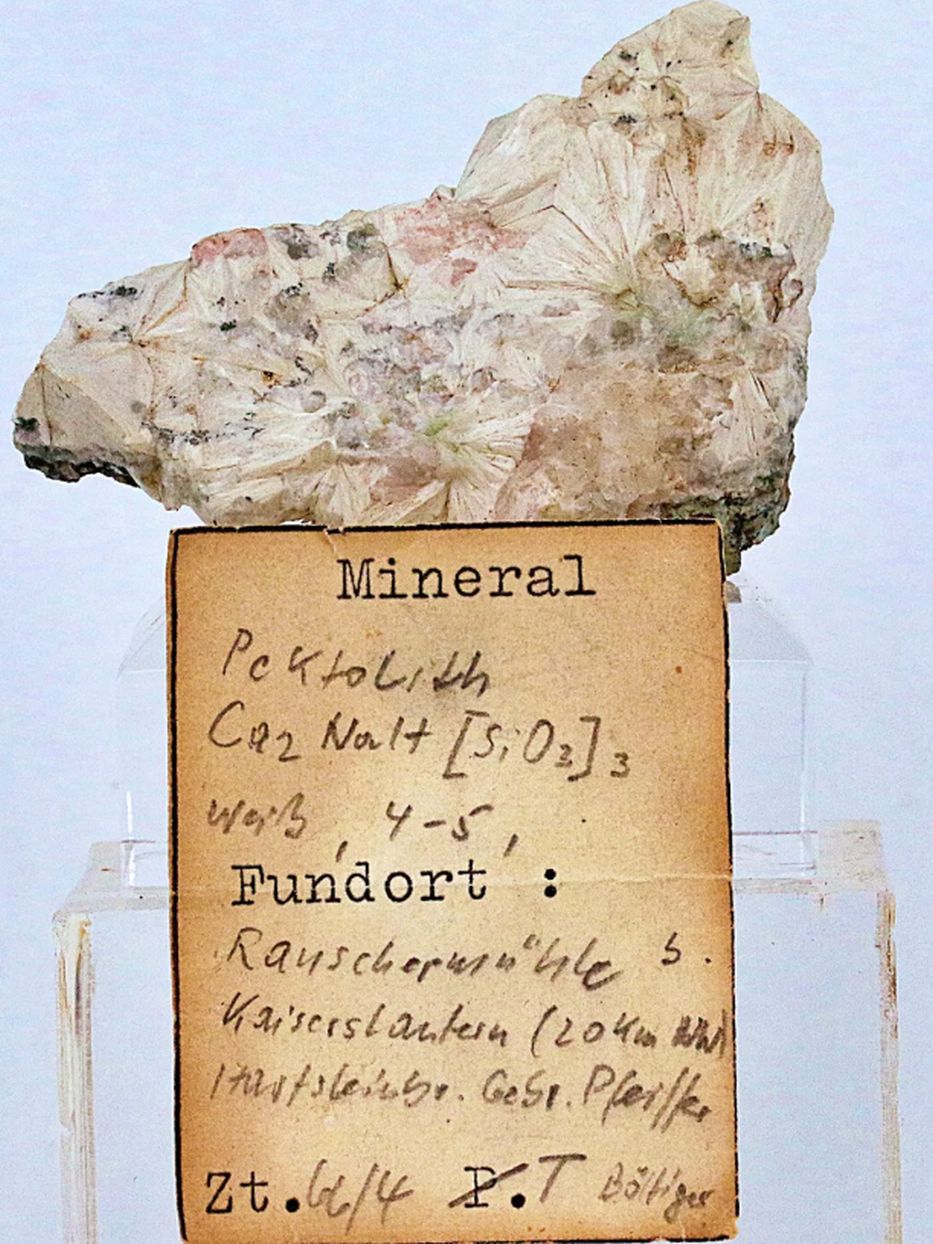 Mineral
Pektolith
Ca2 NaH [SiO3]3
weiß, 4-5,
Fundort :
Rauschermühle b.
Kaiserslautern (20 km NW)
Hartsteinbr. Gebr. Pfeiffer
Zt. 66/4 P.T Böttiger